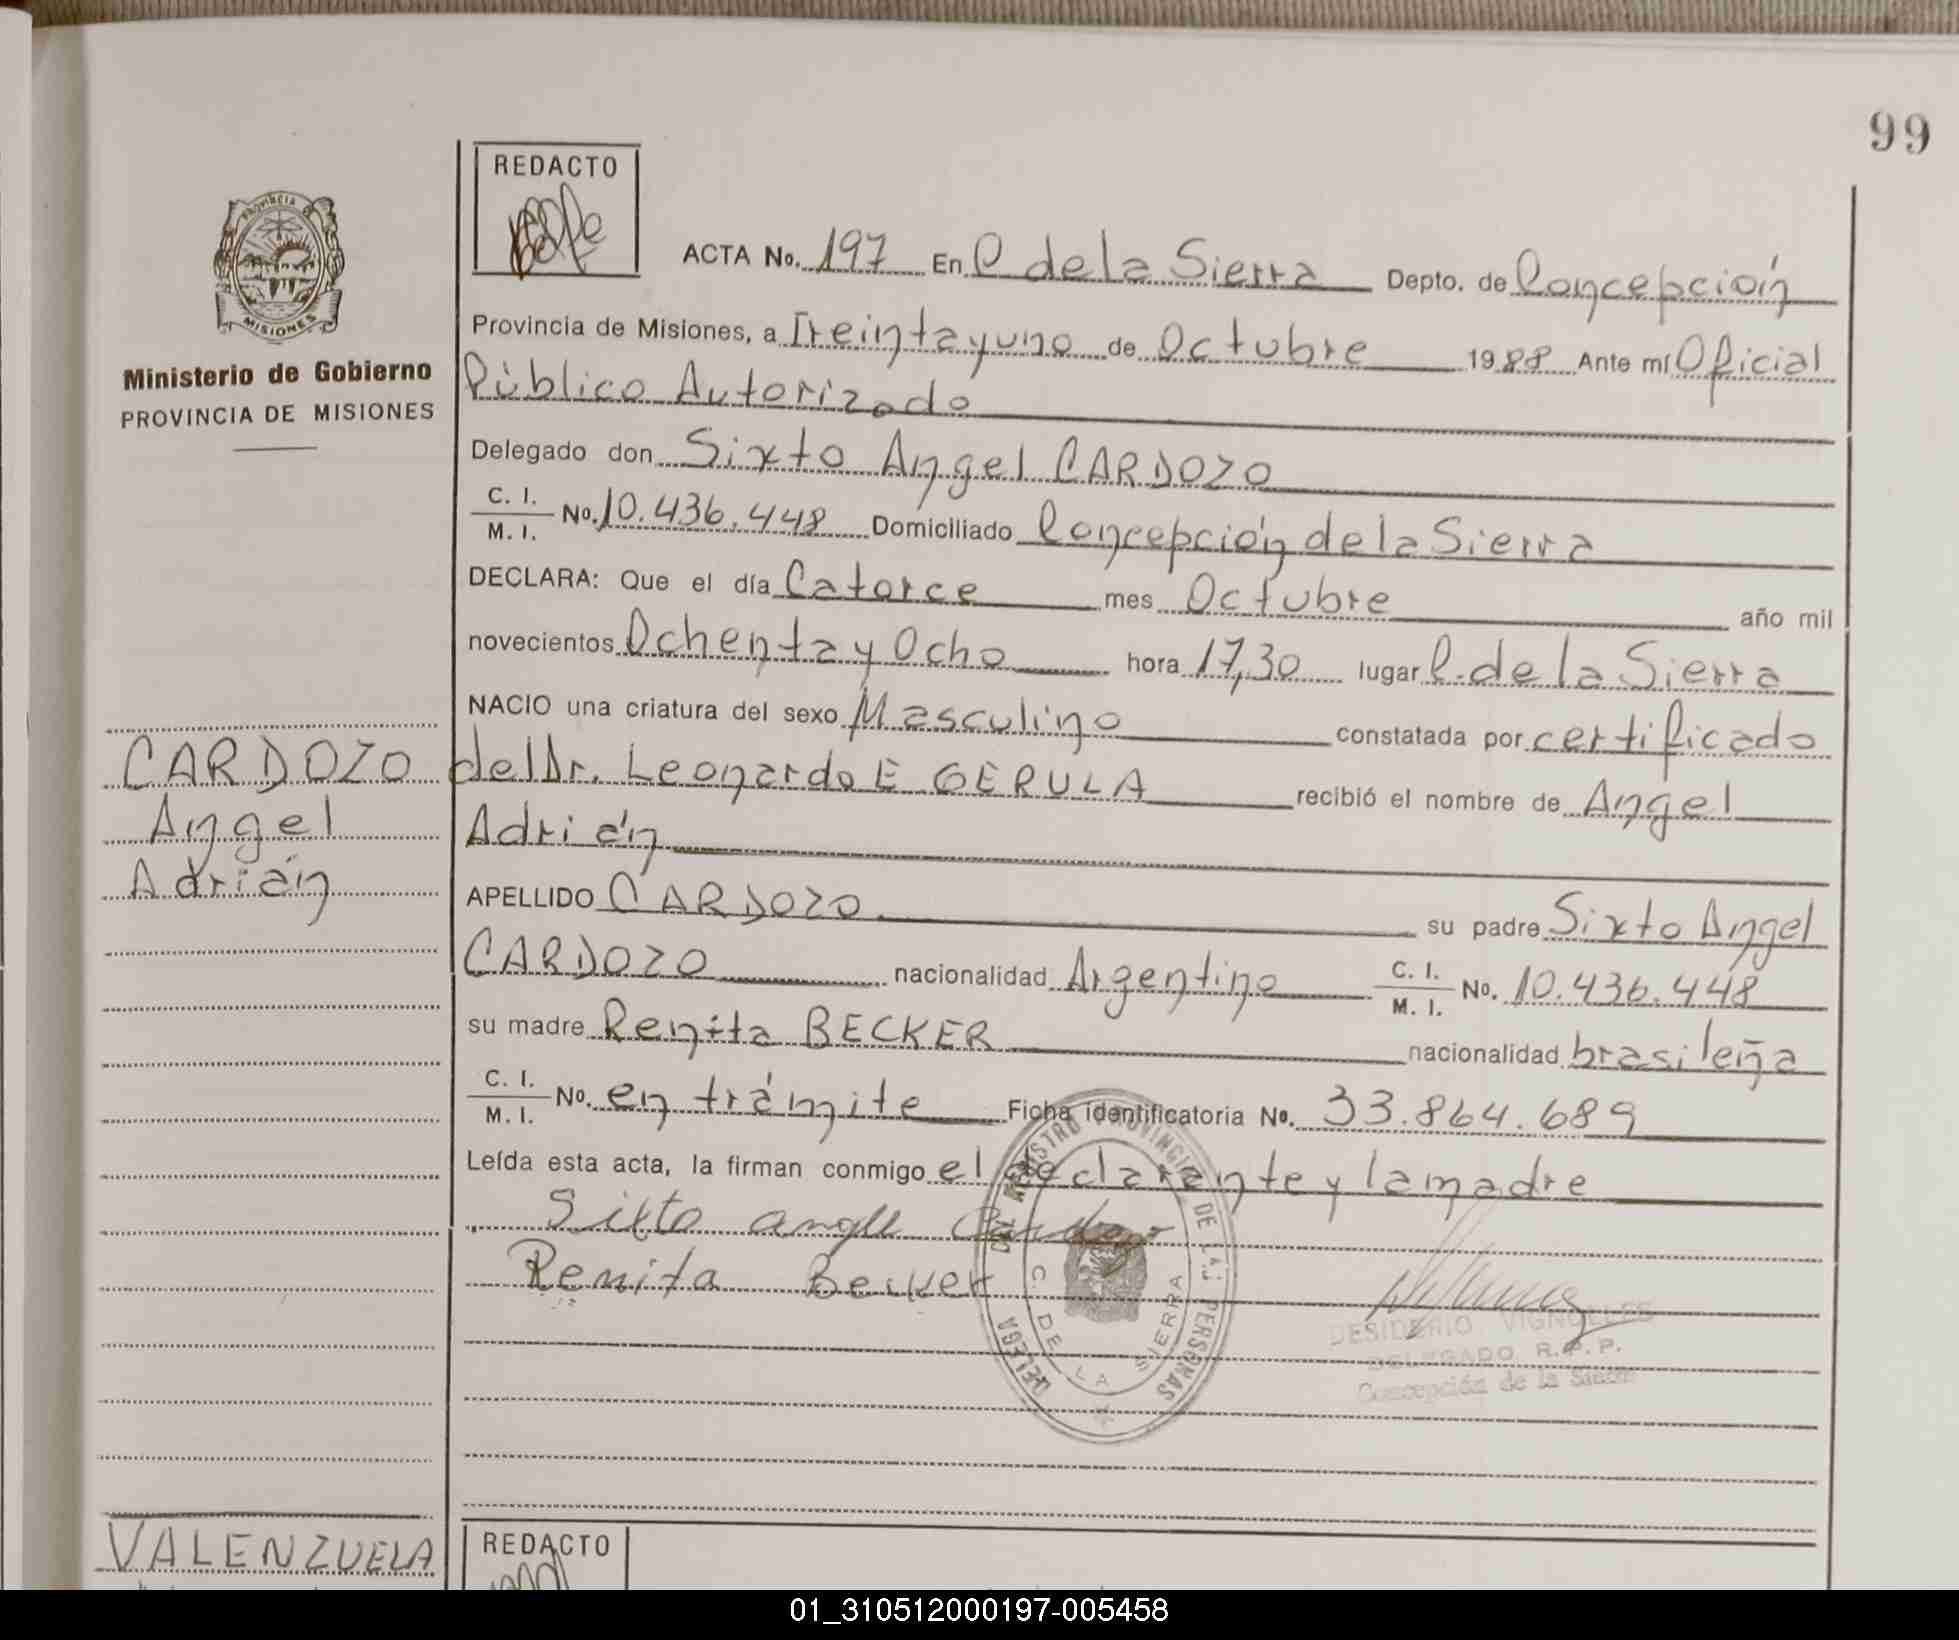 99
REDACTO
PROVINCIA
MISIONES
Ministerio de Gobierno
PROVINCIA DE MISIONES
ACTA No. 197 En C de la Sierra Depto. de Concepción
Provincia de Misiones, a Treinta y uno de Octubre 1988 Ante mí Oficial
Público Autorizado
Delegado don Sixto Angel CARDOZO
C. I. / M. I. No. 10.436.448 Domiciliado Concepción de la Sierra
DECLARA: Que el día Catorce mes Octubre año mil
novecientos Ochenta y Ocho hora 17,30 lugar C. de la Sierra
NACIO una criatura del sexo Masculino constatada por certificado
del Dr. Leonardo E GERULA recibió el nombre de Angel
Adrián
CARDOZO
Angel
Adrián
APELLIDO CARDOZO su padre Sixto Angel
CARDOZO nacionalidad Argentino C. I. / M. I. No. 10.436.448
su madre Renita BECKER nacionalidad brasileña
C. I. / M. I. No. en trámite Ficha identificatoria No. 33.864.689
Leída esta acta, la firman conmigo el declarante y la madre
Sixto angel Cardozo
Renita Becker
REGISTRO PROVINCIAL DE LAS PERSONAS
C. DE LA SIERRA
DESIDERIO VIGNOLLES
DELEGADO R.P.P.
Concepción de la Sierra
VALENZUELA
REDACTO
01_310512000197-005458